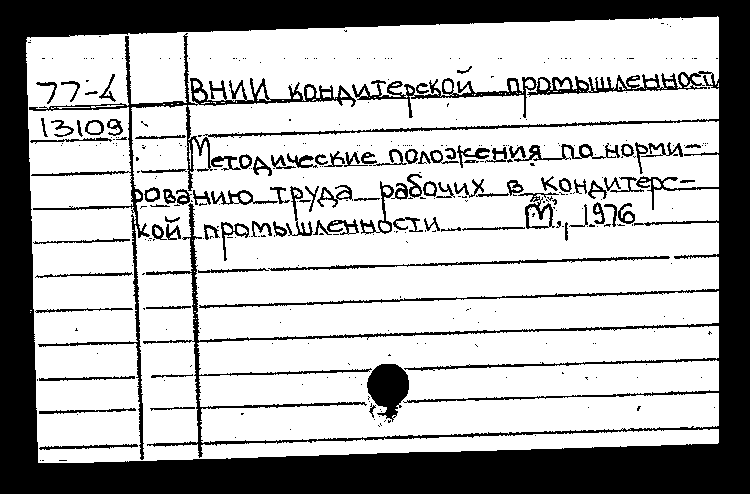 77-4 ВНИИ кондитерской промышленности
13109
Методические положения по норми-
рованию труда рабочих в кондитерс-
кой промышленности М., 1976